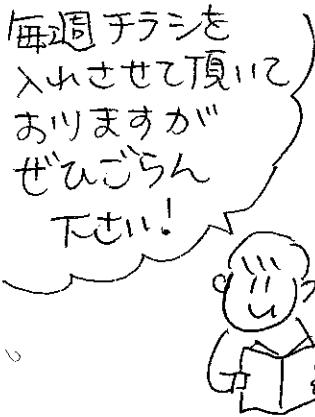 毎週チラシを
入れさせて頂いて
おりますが
ぜひごらん
下さい!